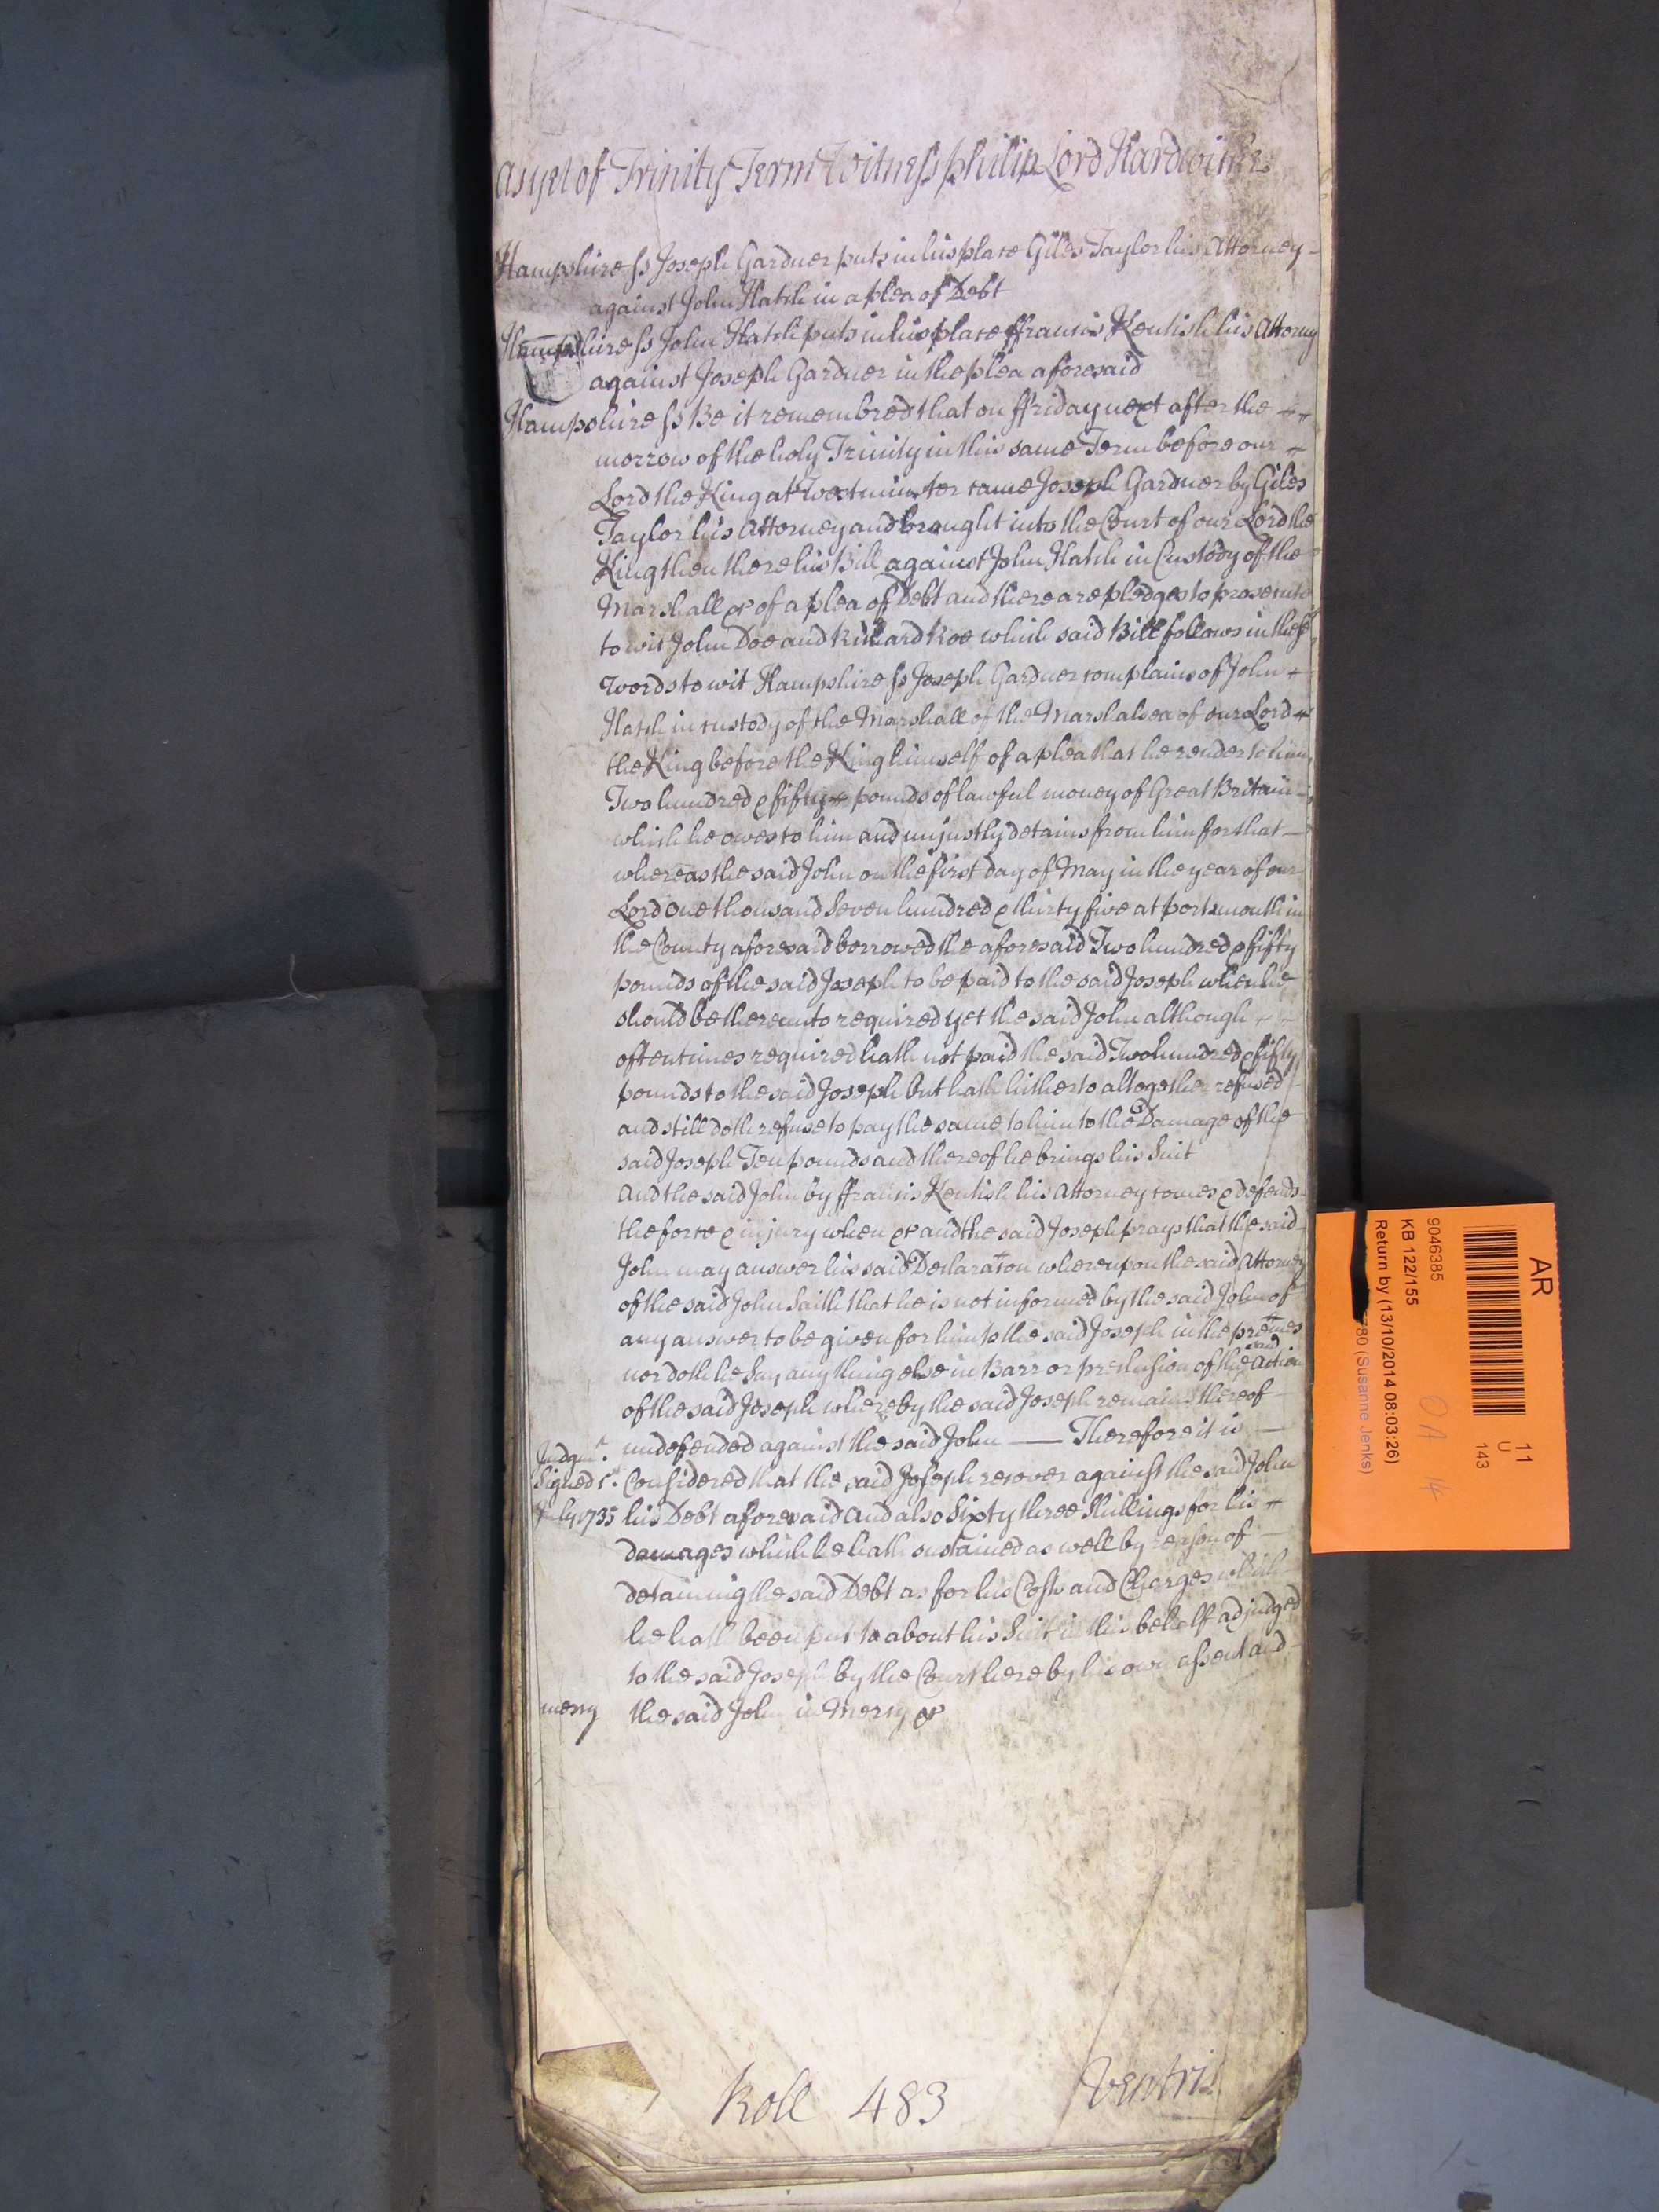 As yet of Trinity Term Witness Philip Lord Hardwicke
Hampshire ss Joseph Gardner puts in his place Giles Taylor his Attorney
against John Hatch in a plea of Debt
Hampshire ss John Hatch puts in his place ffrancis Kentish his Attorny
against Joseph Gardner in the plea aforesaid
Hampshire ss Be it remembred that on ffriday next after the
morrow of the holy Trinity in this same Term before our
Lord the King at Westminster came Joseph Gardner by Giles
Taylor his Attorney and brought into the Court of our Lord the
King then there his Bill against John Hatch in Custody of the
Marshall &c of a plea of Debt and there are pledges to prosecute
to wit John Doe and Richard Roe which said Bill follows in these
words to wit Hampshire ss Joseph Gardner complains of John
Hatch in custody of the Marshall of the Marshalsea of our Lord
the King before the King himself of a plea that he render to him
Two hundred & fifty pounds of lawful money of Great Britain
which he owes to him and unjustly detains from him for that
whereas the said John on the first day of May in the year of our
Lord one thousand Seven hundred & thirty five at portsmouth in
the County aforesaid borrowed the aforesaid Two hundred & fifty
pounds of the said Joseph to be paid to the said Joseph when he
should be thereunto required yet the said John although
oftentimes required hath not paid the said Two hundred & fifty
pounds to the said Joseph but hath hitherto altogether refused
and still doth refuse to pay the same to him to the Damage of the
said Joseph Ten pounds and thereof he brings his Suit
And the said John by ffrancis Kentish his Attorney comes & defends
the force & injury when &c and the said Joseph prays that the said
John may answer his said Declaraton whereupon the said Attorney
of the said John Saith that he is not informed by the said John of
any answer to be given for him to the said Joseph in the premes
nor doth he Say any thing else in Barr or preclusion of the said Action
of the said Joseph whereby the said Joseph remains thereof
undefended against the said John — Therefore it is
Judgmt.
Signed 1st.
July 1735
Considered that the said Joseph recover against the said John
his Debt aforesaid and also Sixty three Shillings for his
damages which he hath sustained as well by reason of
detaining the said Debt as for his Costs and Charges which
he hath been put to about his Suit in this behalf adjudged
to the said Joseph by the Court here by his own assent and
mercy the said John in Mercy &c
Roll 483
Ventris
AR
11
U
143
9046385
KB 122/155
Return by (13/10/2014 08:03:26)
780 (Susanne Jenks)